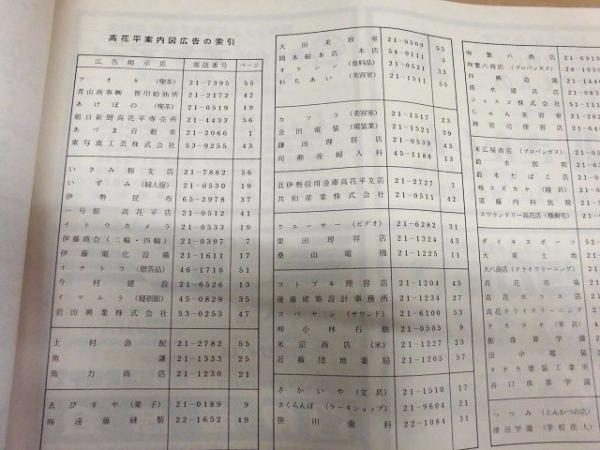 高花平案内図広告の索引
広告掲示店 電話番号 ページ
アオキ (喫茶) 21-7395 55
青山商事㈱ 笹川給油所 21-2172 42
あけぼの (喫茶) 21-0519 19
朝日新聞高花平専売所 21-4433 56
あづま自動車 21-2066 1
東写真工芸株式会社 53-9255 43
いさみ鮨支店 21-7882 56
いずみ (婦人服) 21-0530 19
伊勢昆布 65-2978 37
一号館 高花平店 21-0512 41
イトウカメラ 21-0533 19
伊藤商会 (二輪・四輪) 21-0397 7
伊藤電化設備 21-1611 17
イナトウ (贈答品) 46-1710 51
今村建設 21-6526 13
イマムラ (寝装館) 45-0829 35
岩田興業株式会社 53-0253 47
上村急配 21-2782 55
魚謙 21-1333 25
魚力商店 21-1230 21
ゑびすや (菓子) 21-0189 9
㈱遠藤縫製 22-1652 49
大田美容室 21-0509 55
岡本総本店 本店 54-0111 3
オワシン (食料品) 21-0521 33
おちあい (美容室) 21-1511 55
カツラ (美容室) 21-1517 23
金田電装 (電装業) 21-1521 39
鎌田理容店 21-0539 43
司瀬産婦人科 45-1188 13
北伊勢信用金庫高花平支店 21-2727 7
共和産業株式会社 21-0511 42
クエーサー (ビデオ) 21-6282 31
栗田理容店 21-1324 43
桑山電機 21-1225 11
コトブキ理容店 21-1204 43
後藤建築設計事務所 21-1234 27
コバヤシ (サウンド) 21-6100 53
㈲小林石油 21-0505 9
米宗商店 (米) 21-1227 23
近藤団地薬局 21-1205 57
さかいや (文具) 21-1510 17
さくらんぼ (ケーキショップ) 21-9604 21
笹川歯科 22-1084 31
21-6919
㈲繁八商店 (プロパンガス) 28-1030
清水建具店
ジャスコ株式会社 51-11
じゅん美容室
末広屋商店 (プロパンガス)
鈴木医院
鈴木たばこ店
須藤内科医院
スワランドリー高花店 (種鶏宅)
ダイキスポーツ
大東土地
大八商店 (ドライクリーニング)
高花市場
高花ガラス店
高花ドライクリーニング
タカラヤ (家具)
田中電装
谷口珠算学園
つつみ (とんかつの店)
津田学園 (学校法人)